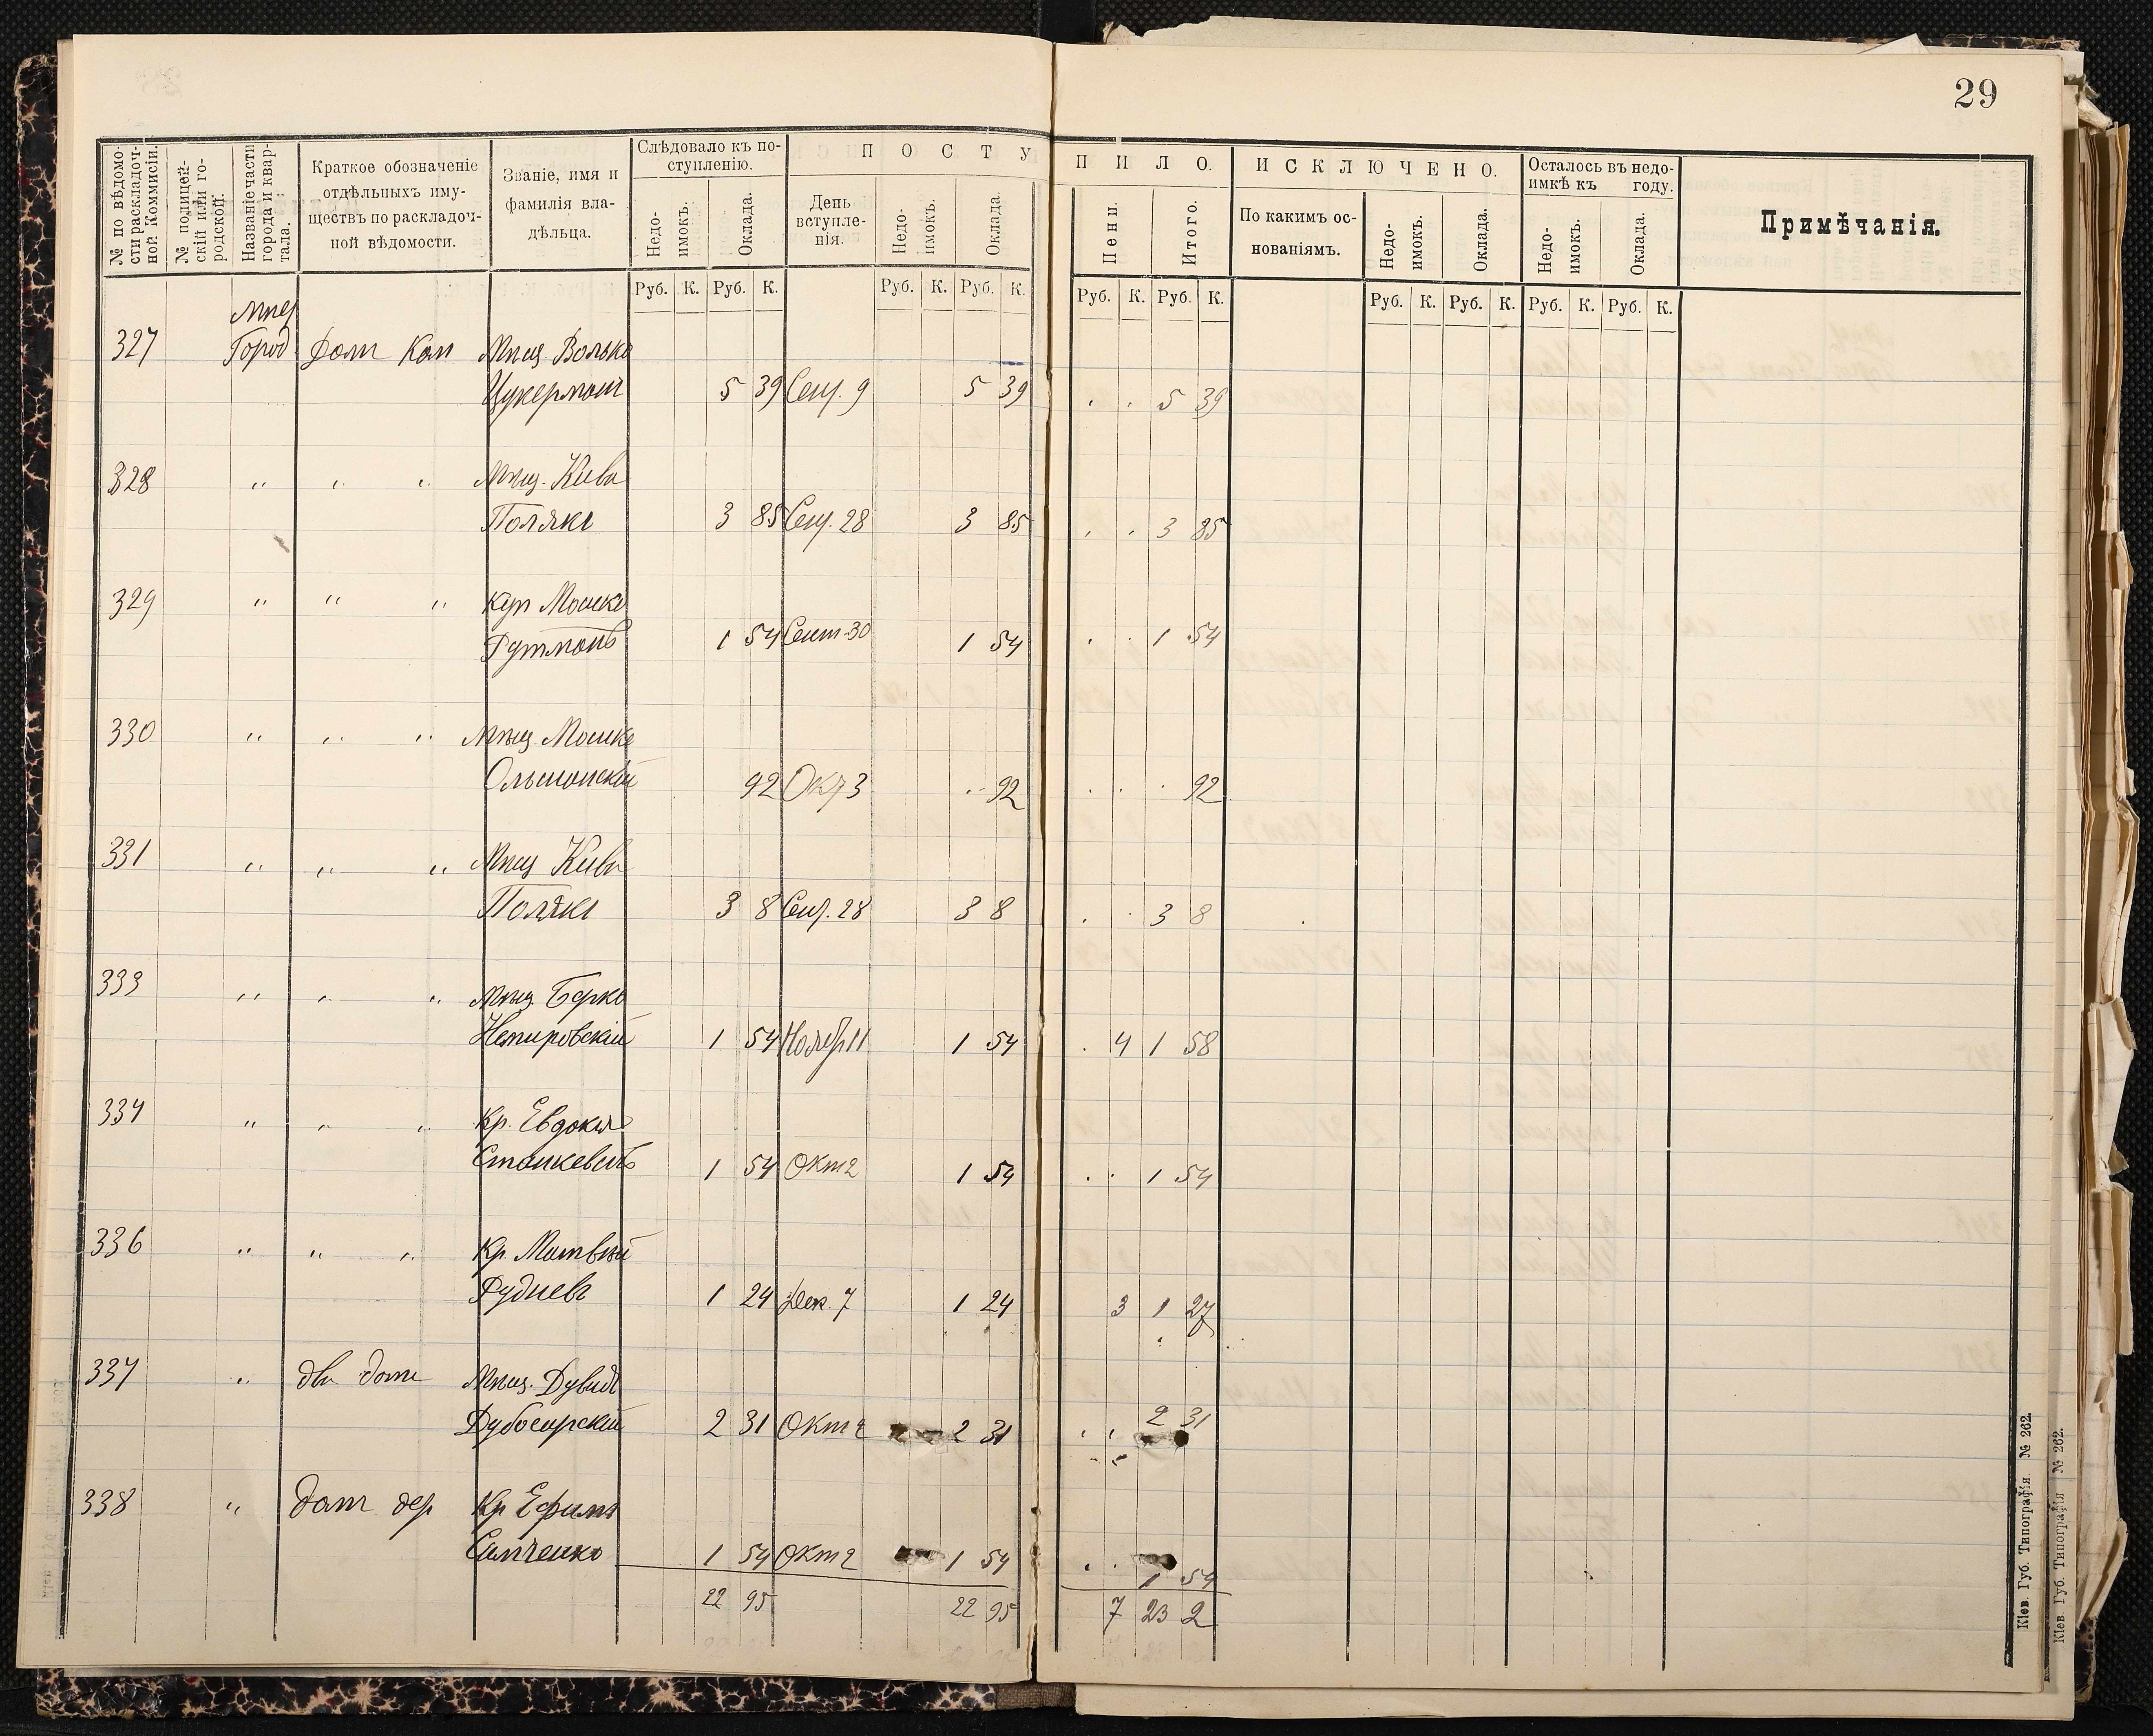 29
№ по вѣдомости раскладочной Коммисіи.
№ полицейскій или городской.
Названіе части города и квартала.
Краткое обозначеніе отдѣльныхъ имуществъ по раскладочной вѣдомости.
Званіе, имя и фамилія владѣльца.
Слѣдовало къ поступленію.
Недоимокъ.
Оклада.
ПОСТУПИЛО.
День вступленія.
Недоимокъ.
Оклада.
Пени.
Итого.
ИСКЛЮЧЕНО.
По какимъ основаніямъ.
Недоимокъ.
Оклада.
Осталось въ недоимкѣ къ году.
Недоимокъ.
Оклада.
Примѣчанія.
Руб. К. Руб. К. Руб. К. Руб. К. Руб. К. Руб. К. Руб. К. Руб. К. Руб. К. Руб. К.
327 Город Домъ Кам Мѣщ. Волько
Цукерманъ 5 39 Сент. 9 5 39 . . 5 39
328 " " " Мѣщ. Кива
Полякъ 3 85 Сент. 28 3 85 . . 3 85
329 " " " Куп Мошко
Гутманъ 1 54 Сент 30 1 54 . . 1 54
330 " " " Мѣщ. Мошко
Ольшанскій 92 Окт 3 . 92 . . . 92
331 " " " Мѣщ Кива
Полякъ 3 8 Сент. 28 3 8 . . 3 8
333 " " " Мѣщ. Берко
Немировскій 1 54 Ноябр 11 1 54 . 4 1 58
334 " " " Кр. Евдокія
Станкевичъ 1 54 Окт 2 1 54 . . 1 54
336 " " " Кр. Матвѣй
Рудневъ 1 24 Дек. 7 1 24 3 1 27
337 " два дома Мѣщ. Дувидъ
Дубосарскій 2 31 Окт 2 2 31 . . 2 31
338 " домъ дер Кр Ефимъ
Самченко 1 54 Окт 2 1 54 . . 1 54
22 95 22 95 7 23 2
Кіев. Губ. Типографія № 262.
Кіев. Губ. Типографія № 262.